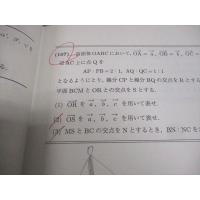 (107) 四面体OABCにおいて, OA=a, OB=b, OC=
辺BC上に点Qを
AP:PB=2:1, BQ:QC=1:1
となるようにとり, 線分CPと線分BQの交点をRと
平面BCMとORとの交点をSとする.
(1) OHをa, b, cを用いて表せ.
(2) OSをa, b, cを用いて表せ.
(3) MSとBCの交点をNとするとき, BN:NCを